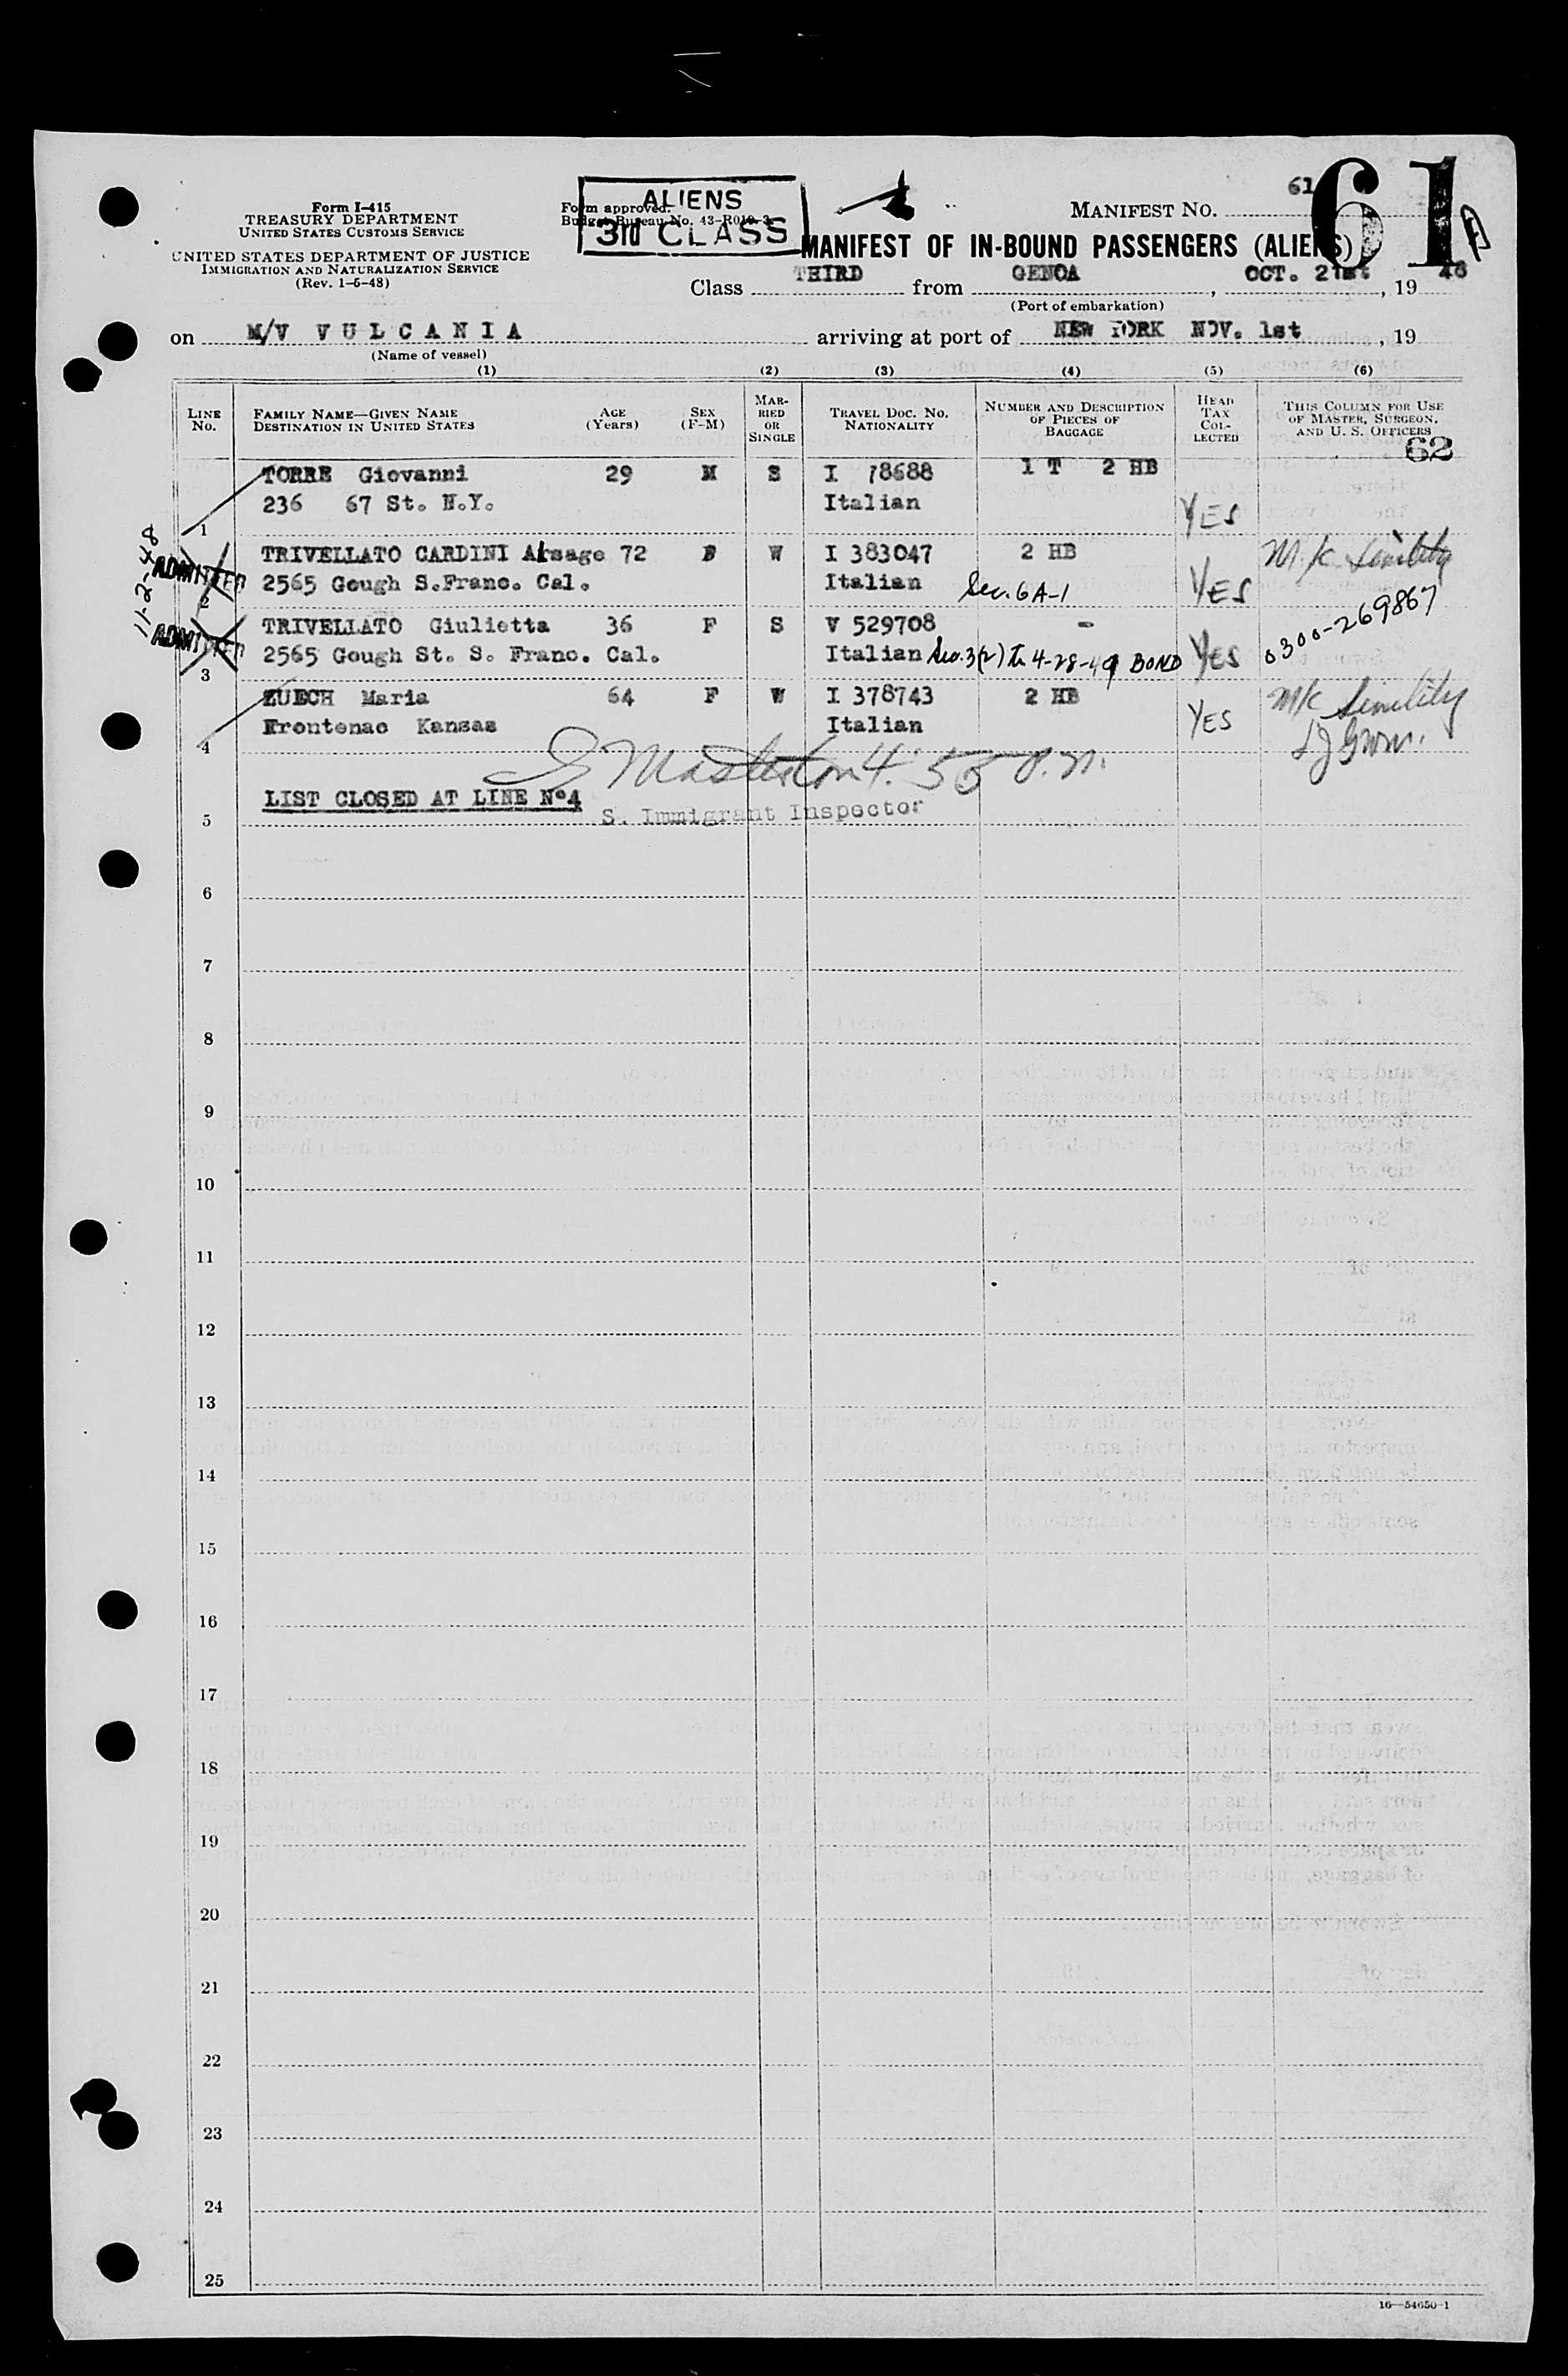 61
61
A
ALIENS
3rd CLASS
Form I-415
TREASURY DEPARTMENT
UNITED STATES CUSTOMS SERVICE
UNITED STATES DEPARTMENT OF JUSTICE
IMMIGRATION AND NATURALIZATION SERVICE
(Rev. 1-5-48)
Form approved.
Budget Bureau No. 43-R010-3
MANIFEST NO.
MANIFEST OF IN-BOUND PASSENGERS (ALIENS)
Class THIRD from GENOA, OCT. 21st, 19 48
(Port of embarkation)
on M/V VULCANIA arriving at port of NEW YORK NOV. 1st, 19
(Name of vessel)
(1) (2) (3) (4) (5) (6)
LINE No. FAMILY NAME—GIVEN NAME DESTINATION IN UNITED STATES AGE (Years) SEX (F-M) MARRIED OR SINGLE TRAVEL DOC. NO. NATIONALITY NUMBER AND DESCRIPTION OF PIECES OF BAGGAGE HEAD TAX COLLECTED THIS COLUMN FOR USE OF MASTER, SURGEON, AND U. S. OFFICERS
62
TORRE Giovanni 29 M S I 78688 1 T 2 HB
236 67 St. N.Y. Italian YES
1
11-2-48
TRIVELLATO CARDINI 72 W I 383047 2 HB M/k
ADMITTED 2565 Gough S.Franc. Cal. Italian Sec. 6A-1 YES
2
TRIVELLATO Giulietta 36 F S V 529708 - 0300-269867
ADMITTED 2565 Gough St. S. Franc. Cal. Italian Sec. 3(2) to 4-28-49 BOND YES
3
ZUECH Maria 64 F W I 378743 2 HB M/k
Frontenac Kansas Italian YES
4
Masterson 4:55 P.M.
LIST CLOSED AT LINE Nº4
S. Immigrant Inspector
5
6
7
8
9
10
11
12
13
14
15
16
17
18
19
20
21
22
23
24
25
16—54650-1